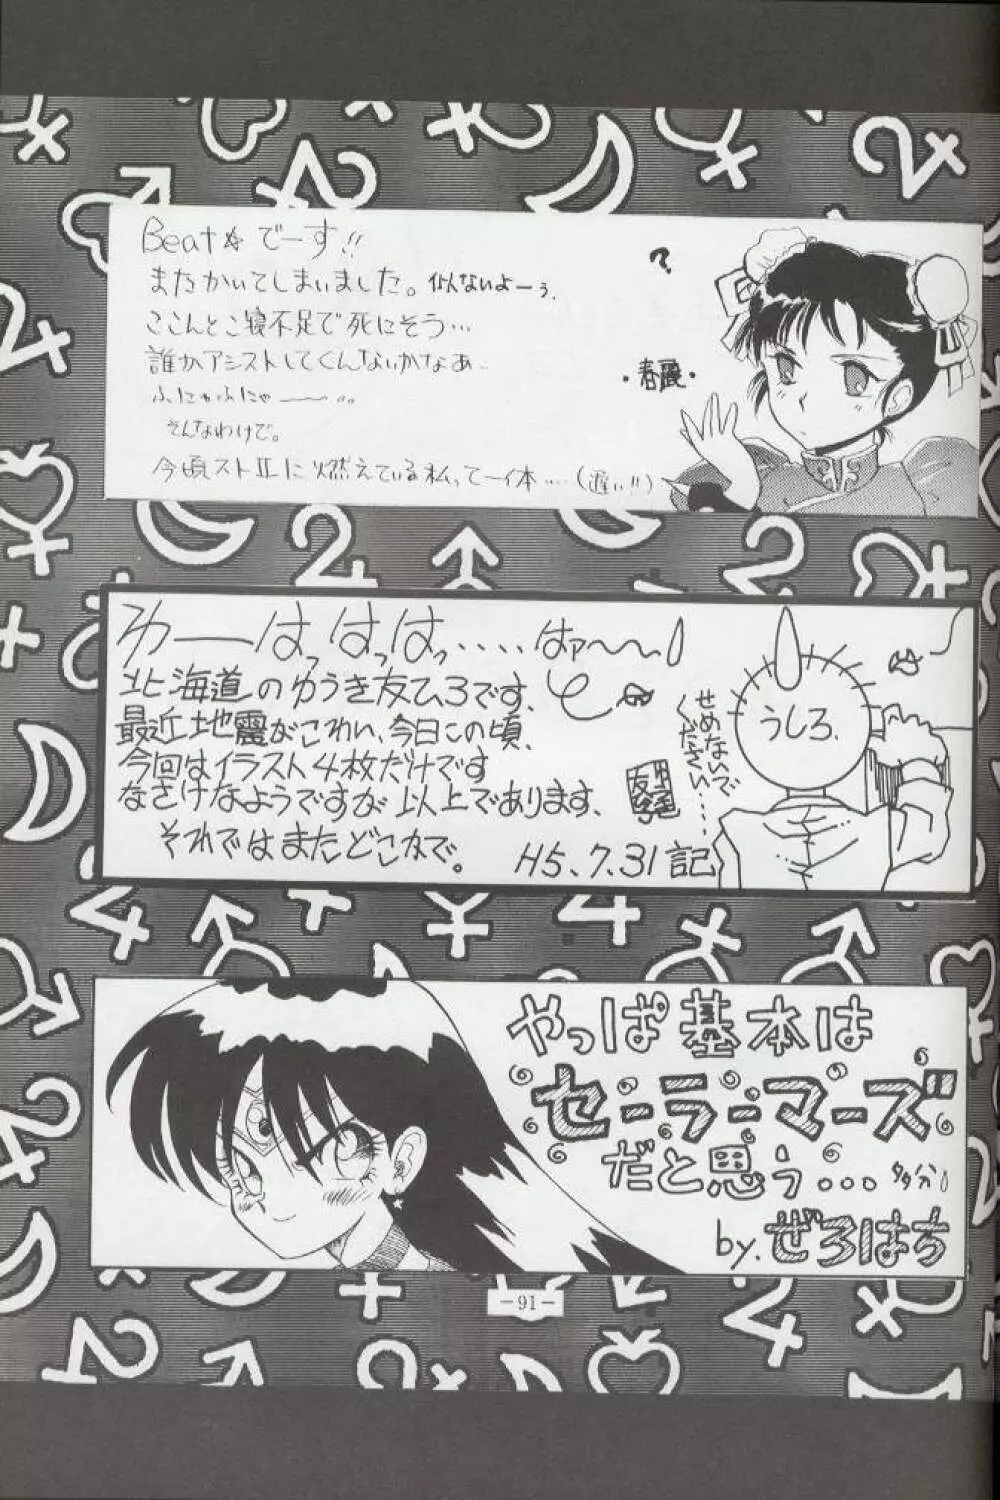 Beat☆でーす!!
またかいてしまいました。似んないよーぅ.
ここんとこ寝不足で死にそう…
誰かアシストしてくんないかなぁ..
ふにゃふにゃ——…
そんなわけで。
今頃ストIIに燃えている私って一体…(遅い!!)
?
・春麗・
わーはっはっはっ....はァ〜〜
北海道のゆうき友ひろです、
最近地震がこわい、今日この頃、
今回はイラスト4枚だけです
なさけなようですが以上であります、
それではまたどこかで。
H5.7.31記
せめないで
ください…
うしろ.
やっぱ基本は
セーラーマーズ
だと思う...多分
by.ぜろはち
-91-